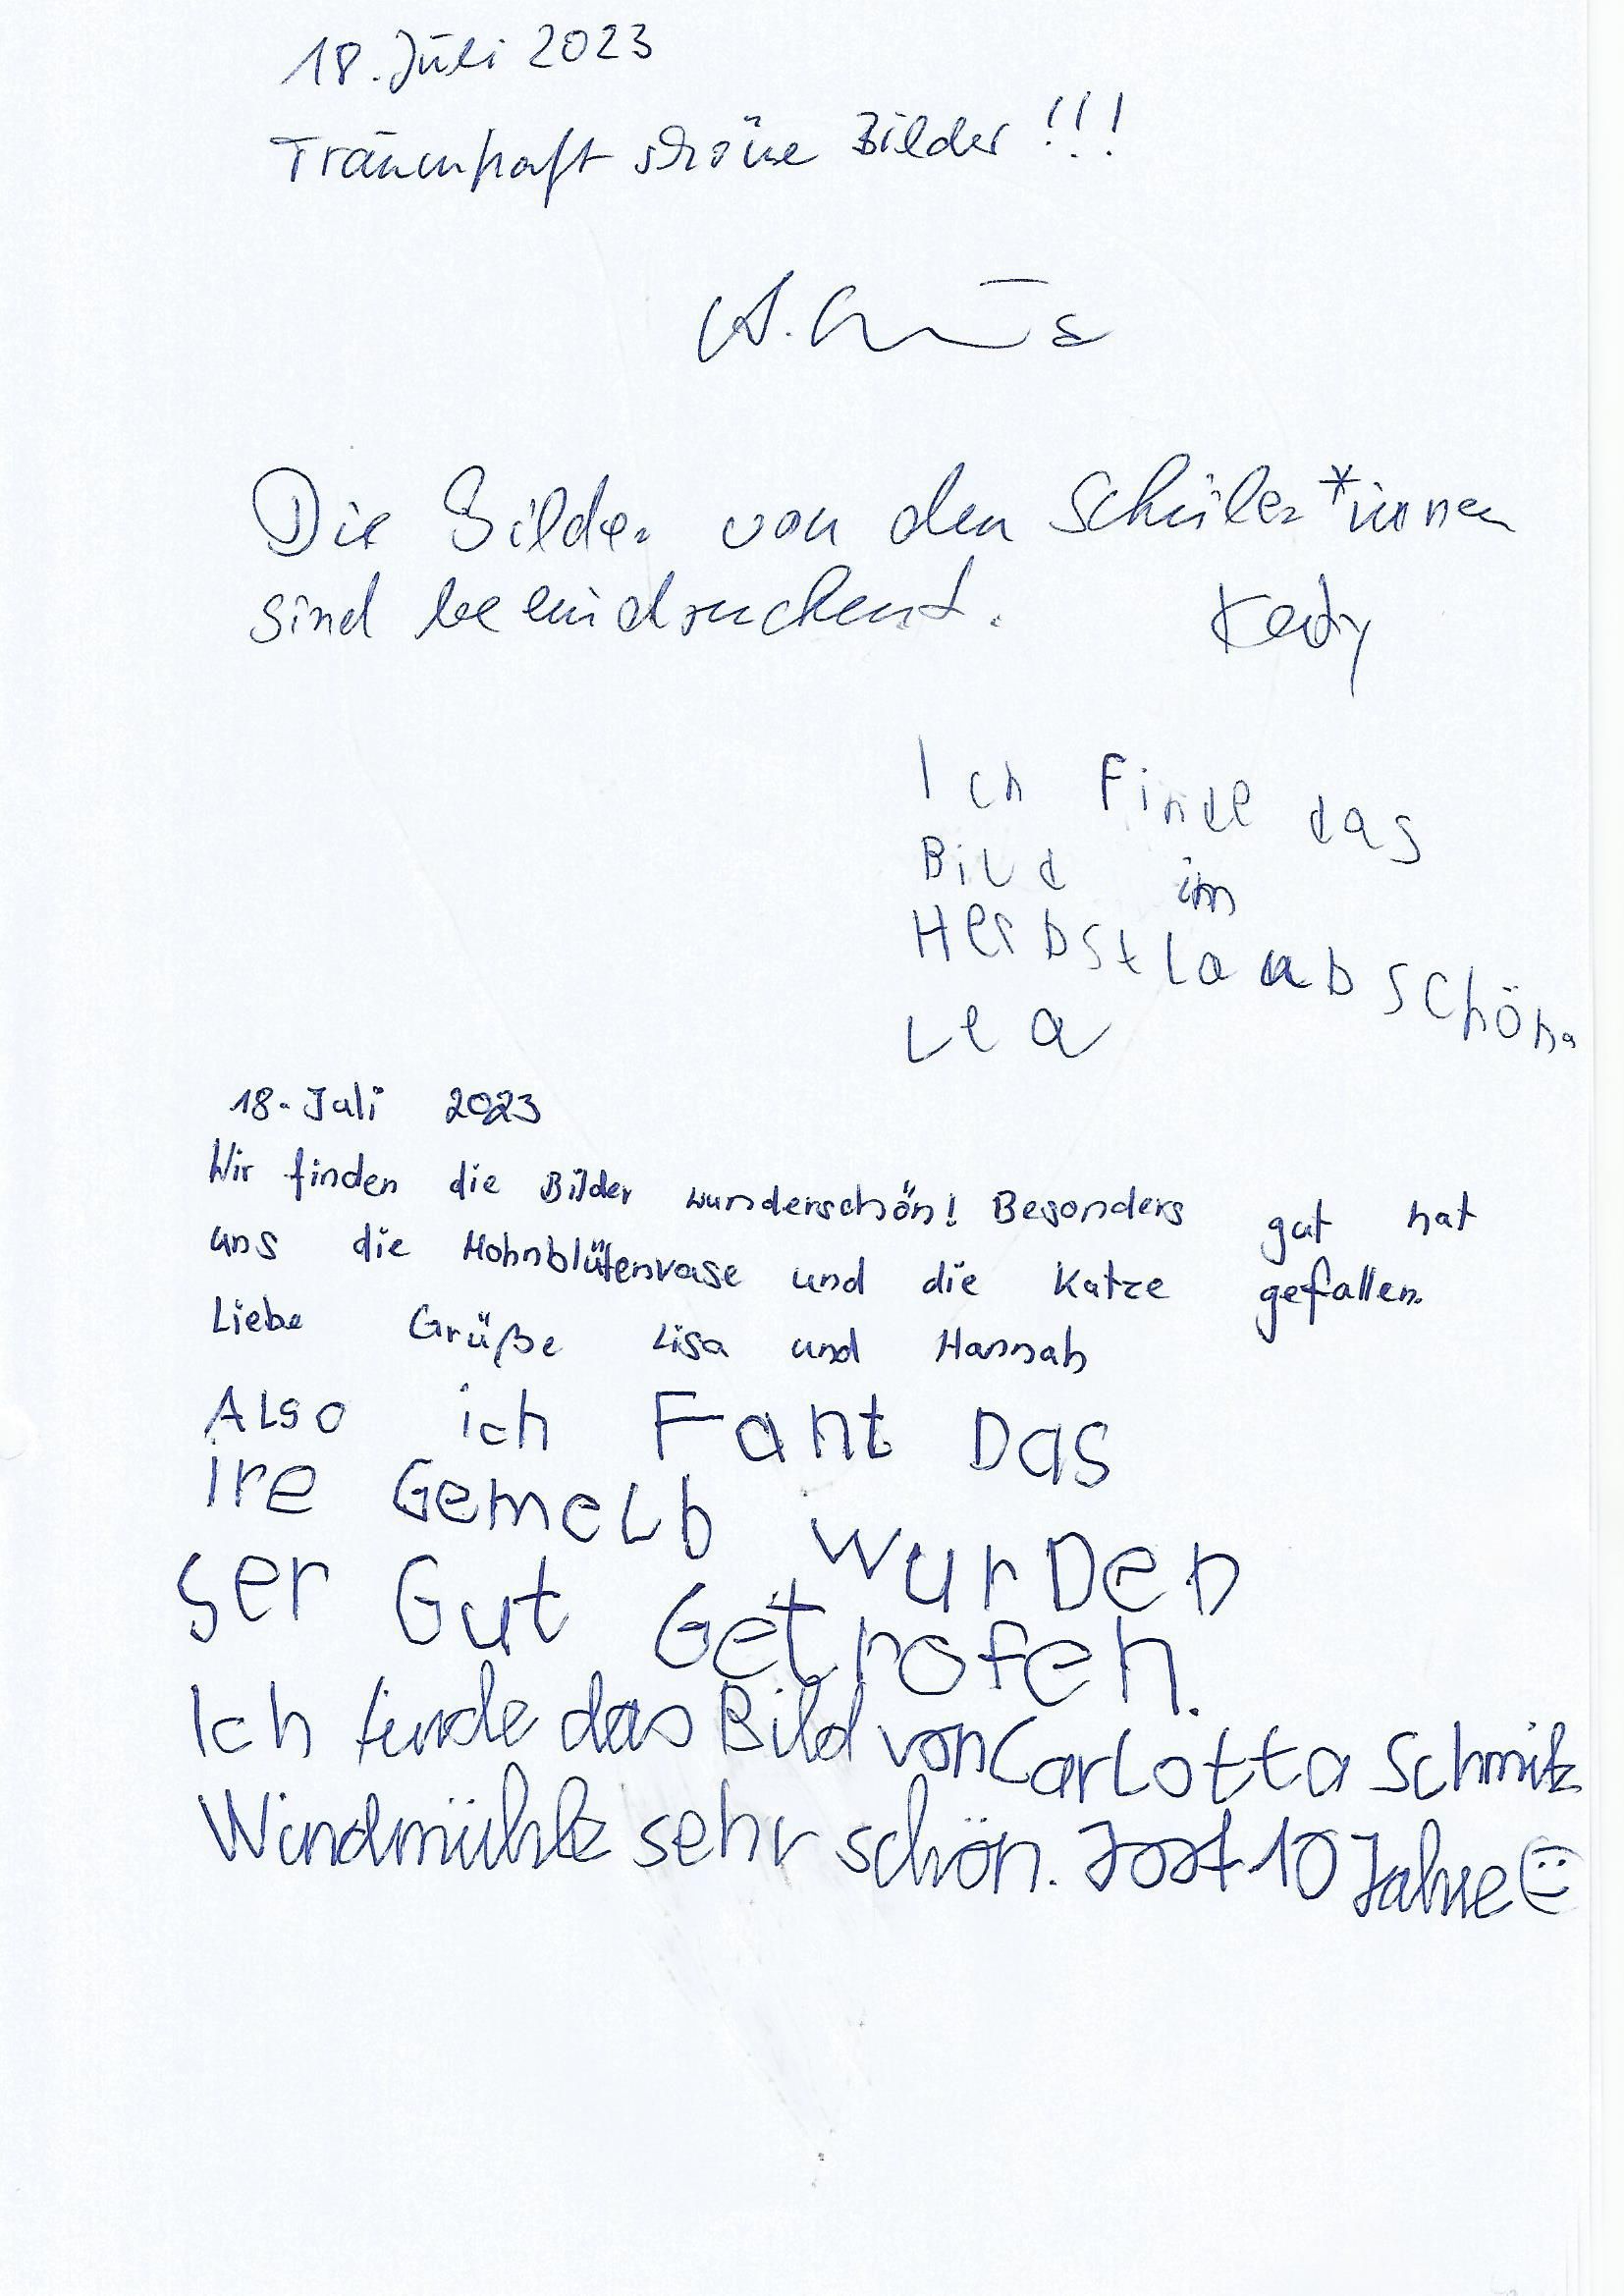 18. Juli 2023
Traumhaft schöne Bilder!!!
Die Bilder von den Schüler*innen
sind beeindruckend.
Ich Finde das
Bild im
Herbstlaub schön.
Lea
18. Juli 2023
Wir finden die Bilder wunderschön! Besonders gut hat
uns die Mohnblütenvase und die Katze gefallen.
Liebe Grüße Lisa und Hannah
Also ich Fant Das
ire Gemelb wurDen
ser Gut Getrofen.
Ich finde das Bild von Carlotta Schmitz
Windmühle sehr schön. Jost 10 Jahre